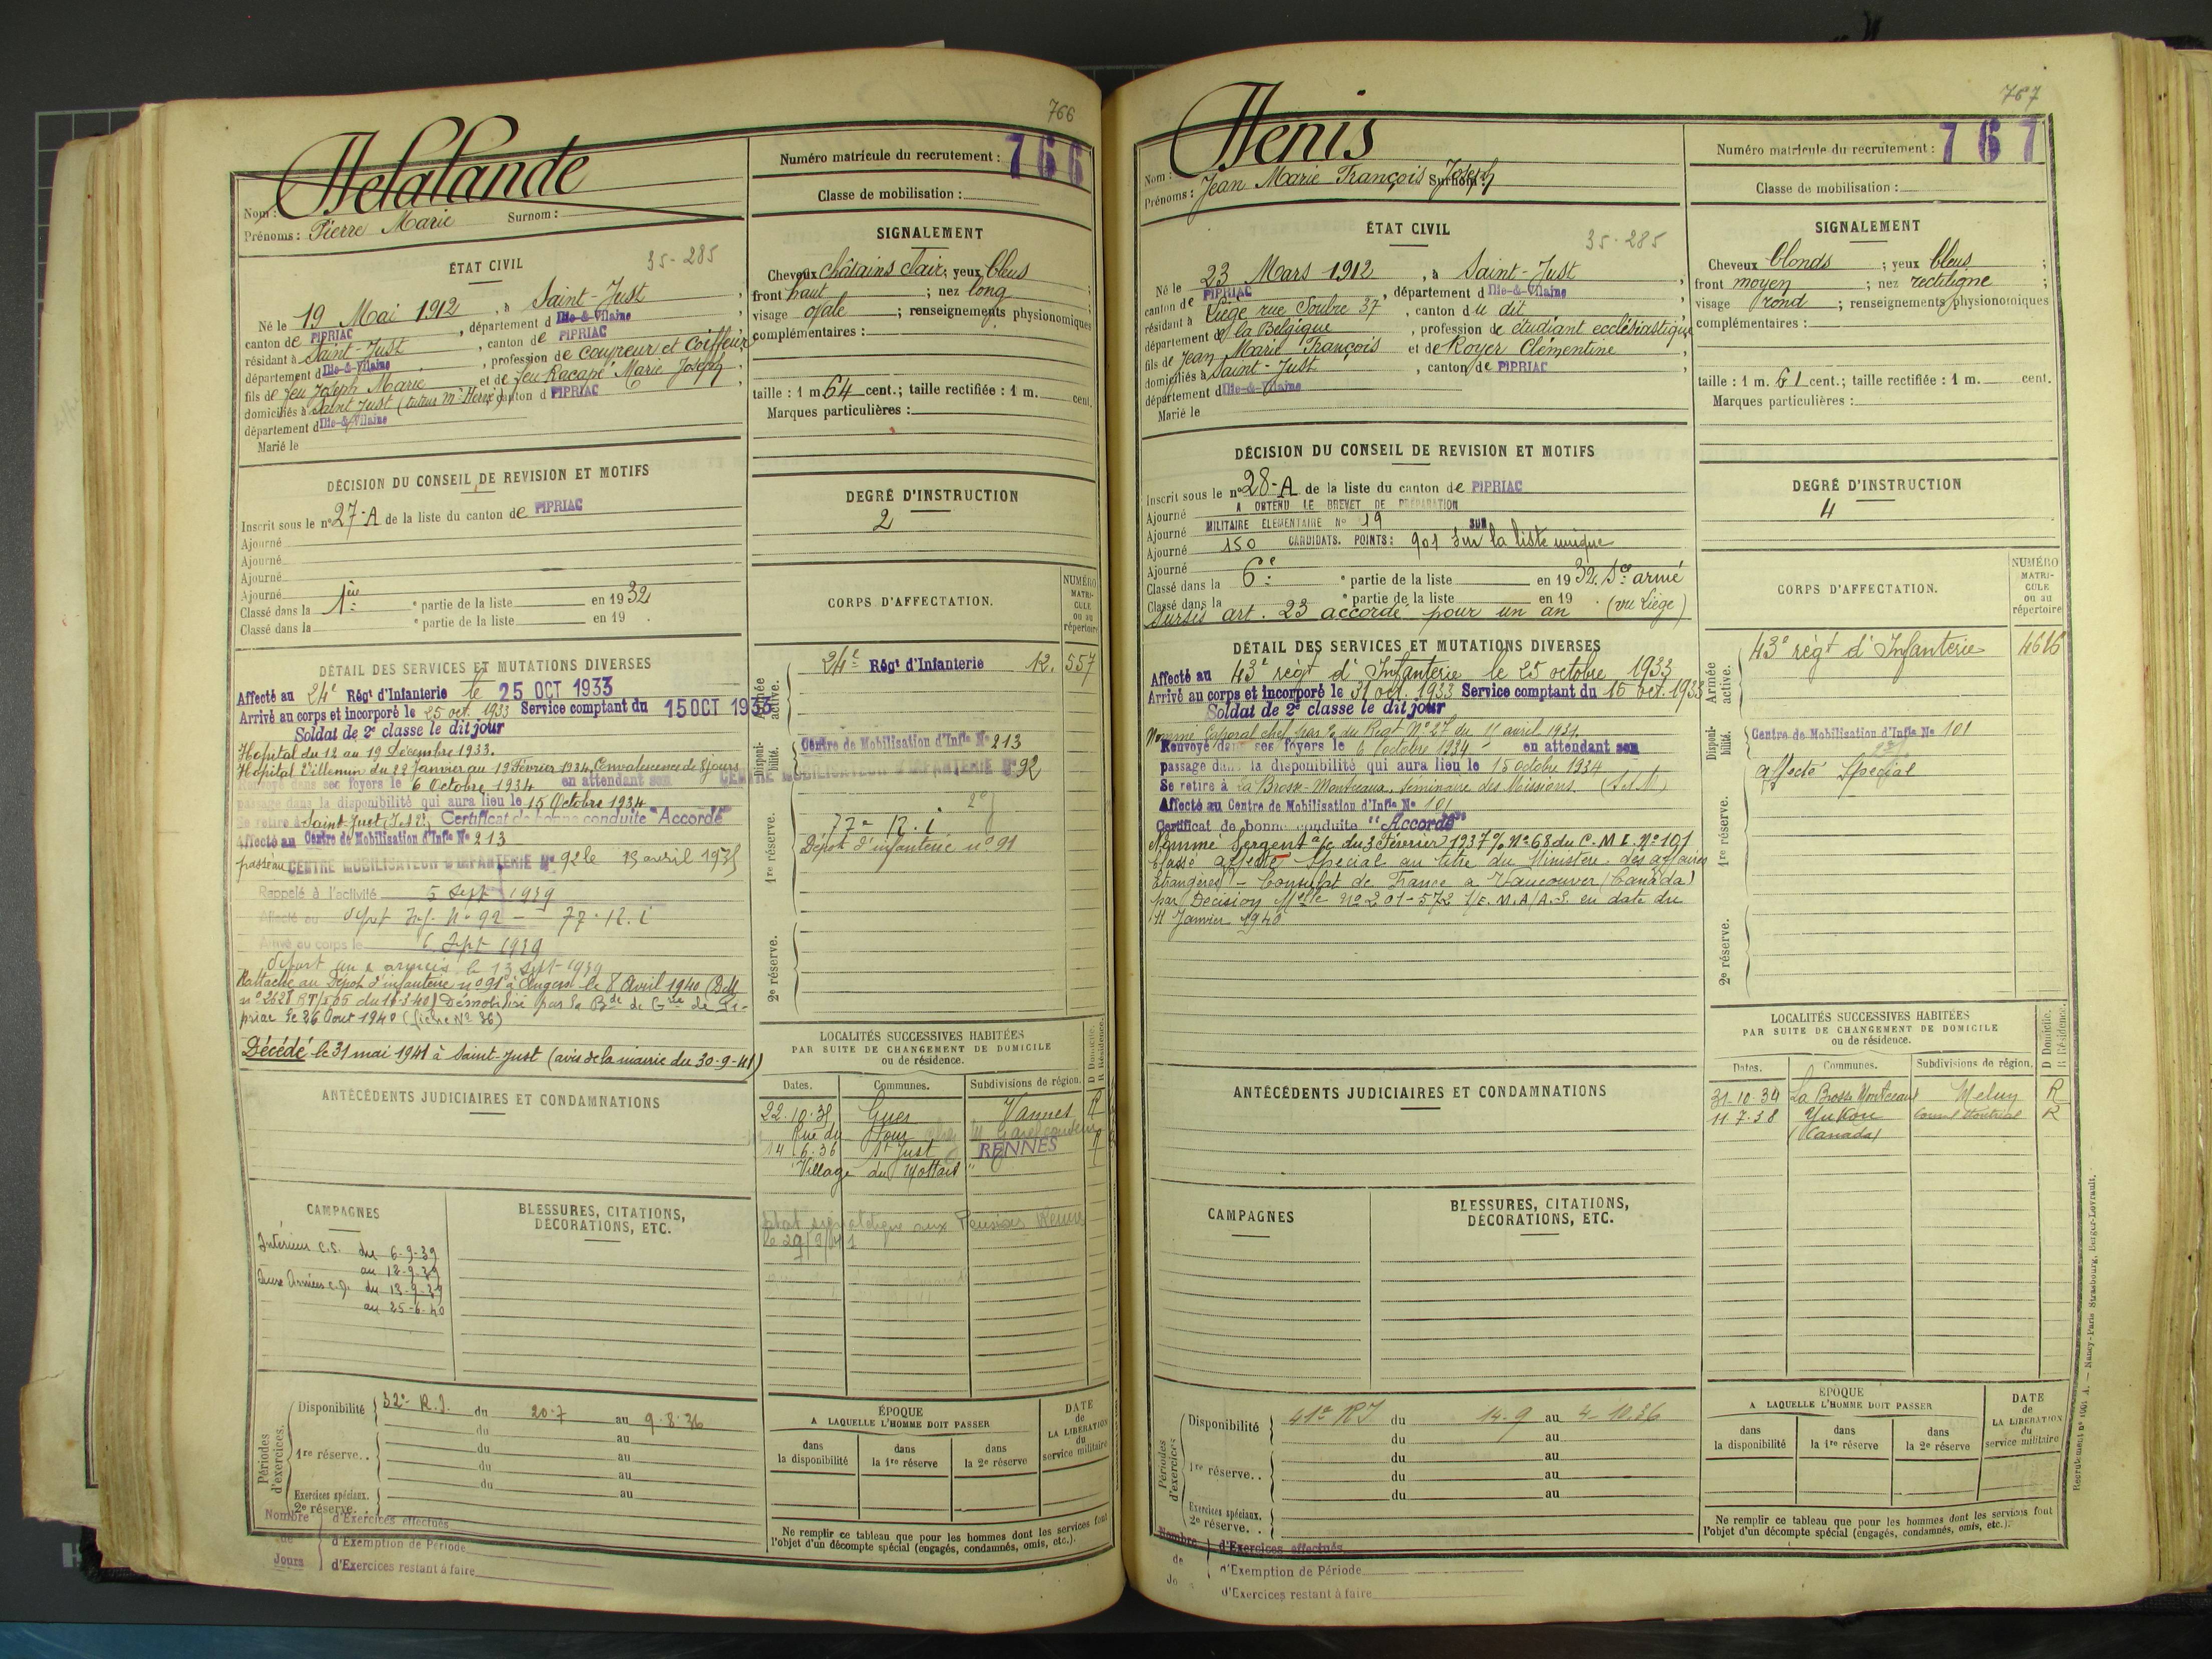 766
Delalande
Nom : Surnom :
Prénoms : Pierre Marie
ÉTAT CIVIL
35-285
Né le 19 Mai 1912, à Saint-Just,
canton de PIPRIAC, département d Ille-&-Vilaine
résidant à Saint-Just, canton de PIPRIAC
département d Ille-&-Vilaine, profession de coupeur et Coiffeur
fils de feu Joseph Marie et de feu Racapé Marie Joseph,
domiciliés à Saint Just (tuteur Mr Herix) canton d PIPRIAC
département d Ille-&-Vilaine
Marié le
DÉCISION DU CONSEIL DE REVISION ET MOTIFS
Inscrit sous le n° 27-A de la liste du canton de PIPRIAC
Ajourné
Ajourné
Ajourné
Ajourné
Classé dans la 1ère partie de la liste en 1932
Classé dans la ° partie de la liste en 19 .
DÉTAIL DES SERVICES ET MUTATIONS DIVERSES
Affecté au 24e Régt d'Infanterie le 25 OCT 1933
Arrivé au corps et incorporé le 25 oct. 1933 Service comptant du 15 OCT 1933
Soldat de 2e classe le dit jour
Hopital du 12 au 19 Décembre 1933.
Hopital Villemin du 22 Janvier au 19 Février 1934. Convalescence de 8 jours
Renvoyé dans ses foyers le 6 Octobre 1934 en attendant son
passage dans la disponibilité qui aura lieu le 15 Octobre 1934
Se retire à Saint-Just (I.&V.) Certificat de bonne conduite "Accordé"
Affecté au Centre de Mobilisation d'Infie No 213
passé au CENTRE MOBILISATEUR D'INFANTERIE No 92 le 15 avril 1935
Rappelé à l'activité 5 Sept 1939
Affecté au dépôt Inf. No 92 - 77. R. i
Arrivé au corps le 6 Sept 1939
départ aux armées le 13 Sept 1939
Rattaché au Dépôt d'infanterie no 91 à Angers le 8 Avril 1940 (D.M.
no 2628 RT/ du 18-3-40) Démobilisé par la Bde de Gie de Pi-
priac le 26 Aout 1940 (fiche No 36)
Décédé le 31 mai 1941 à Saint-Just (avis de la mairie du 30-9-41)
ANTÉCÉDENTS JUDICIAIRES ET CONDAMNATIONS
CAMPAGNES
Intérieur C.S. du 6-9-39
au 12-9-39
Aux Armées C.D. du 13-9-39
au 25-6-40
BLESSURES, CITATIONS,
DÉCORATIONS, ETC.
Périodes d'exercices.
Disponibilité 32e R.I. du 20.7 au 9.8.36
du au
1re réserve.. du au
du au
du au
Exercices spéciaux.
2e réserve. .
Nombre de Jours
d'Exercices effectués
d'Exemption de Période
d'Exercices restant à faire
Numéro matricule du recrutement : 766
Classe de mobilisation :
SIGNALEMENT
Cheveux châtains clair; yeux bleus
front haut ; nez long ;
visage ovale ; renseignements physionomiques
complémentaires :
taille : 1 m 64 cent.; taille rectifiée : 1 m. cent.
Marques particulières :
DEGRÉ D'INSTRUCTION
2
CORPS D'AFFECTATION.
NUMÉRO
MATRI-
CULE
ou au
répertoire
Armée active.
24e Régt d'Infanterie 12. 557
Disponibilité.
Centre de Mobilisation d'Infie No 213
CENTRE MOBILISATEUR D'INFANTERIE No 92
1re réserve.
77e R. i
Dépot d'infanterie no 91
2e réserve.
LOCALITÉS SUCCESSIVES HABITÉES
PAR SUITE DE CHANGEMENT DE DOMICILE
ou de résidence.
D Domicile.
R Résidence.
Dates. Communes. Subdivisions de région.
22.10.35 Guer Vannes R
Rue du Four
14.6.36 St Just RENNES R
Village du Mottais "
le 29/9/41
ÉPOQUE
A LAQUELLE L'HOMME DOIT PASSER
dans la disponibilité
dans la 1re réserve
dans la 2e réserve
DATE
de
LA LIBÉRATION
du
service militaire
Ne remplir ce tableau que pour les hommes dont les services font
l'objet d'un décompte spécial (engagés, condamnés, omis, etc.).
767
Denis
Nom : Surnom :
Prénoms : Jean Marie François Joseph
ÉTAT CIVIL
35-285
Né le 23 Mars 1912, à Saint-Just,
canton de PIPRIAC, département d Ille-&-Vilaine
résidant à Liège rue Soubre 37, canton du dit
département de la Belgique, profession de étudiant ecclésiastique
fils de Jean Marie François et de Royer Clémentine,
domiciliés à Saint-Just, canton de PIPRIAC
département d Ille-&-Vilaine
Marié le
DÉCISION DU CONSEIL DE REVISION ET MOTIFS
Inscrit sous le n° 28-A de la liste du canton de PIPRIAC
Ajourné A OBTENU LE BREVET DE PRÉPARATION
Ajourné MILITAIRE ELEMENTAIRE No 19 SUR
Ajourné 150 CANDIDATS. POINTS: 901 sur la liste unique
Ajourné
Classé dans la 6e ° partie de la liste en 1932. Sce armé
Classé dans la ° partie de la liste en 19 . (vu Liège)
Sursis art. 23 accordé pour un an
DÉTAIL DES SERVICES ET MUTATIONS DIVERSES
Affecté au 43e régt d'Infanterie le 25 octobre 1933
Arrivé au corps et incorporé le 31 oct. 1933 Service comptant du 15 oct. 1933
Soldat de 2e classe le dit jour
Nommé Caporal chef par O. du Régt No 27 du 11 avril 1934.
Renvoyé dans ses foyers le 6 octobre 1934 - en attendant son
passage dans la disponibilité qui aura lieu le 15 octobre 1934
Se retire à La Brosse-Montceaux, Séminaire des Missions. (S.&M.)
Affecté au Centre de Mobilisation d'Infie No 101
Certificat de bonne conduite "Accordé"
Nommé Sergent a/c du 3 Février 1937 % No 68 du C.M.I. No 101
Classé affecté Spécial au titre du Ministère des affaires
Etrangères - Consulat de France à Vancouver (Canada)
par Décision Mlle No 201-572 1/E.M.A/A.S. en date du
11 Janvier 1940
ANTÉCÉDENTS JUDICIAIRES ET CONDAMNATIONS
CAMPAGNES
BLESSURES, CITATIONS,
DÉCORATIONS, ETC.
Périodes d'exercices.
Disponibilité 41e RI du 14.9 au 4-10.36
du au
1re réserve.. du au
du au
du au
Exercices spéciaux.
2e réserve. .
Nombre de Jo s
d'Exercices effectués
d'Exemption de Période
d'Exercices restant à faire
Numéro matricule du recrutement : 767
Classe de mobilisation :
SIGNALEMENT
Cheveux blonds ; yeux bleus ;
front moyen ; nez rectiligne ;
visage rond ; renseignements physionomiques
complémentaires :
taille : 1 m. 61 cent.; taille rectifiée : 1 m. cent.
Marques particulières :
DEGRÉ D'INSTRUCTION
4
CORPS D'AFFECTATION.
NUMÉRO
MATRI-
CULE
ou au
répertoire
Armée active.
43e régt d'Infanterie 4616
Disponibilité.
Centre de Mobilisation d'Infie No 101
affecté Spécial
1re réserve.
2e réserve.
LOCALITÉS SUCCESSIVES HABITÉES
PAR SUITE DE CHANGEMENT DE DOMICILE
ou de résidence.
D Domicile.
R Résidence.
Dates. Communes. Subdivisions de région.
31-10-34 La Brosse Montceaux Melun R
11.7.38 Yukon Consul Montréal R
(Canada)
ÉPOQUE
A LAQUELLE L'HOMME DOIT PASSER
dans la disponibilité
dans la 1re réserve
dans la 2e réserve
DATE
de
LA LIBÉRATION
du
service militaire
Ne remplir ce tableau que pour les hommes dont les services font
l'objet d'un décompte spécial (engagés, condamnés, omis, etc.).
Nancy-Paris-Strasbourg, Berger-Levrault.